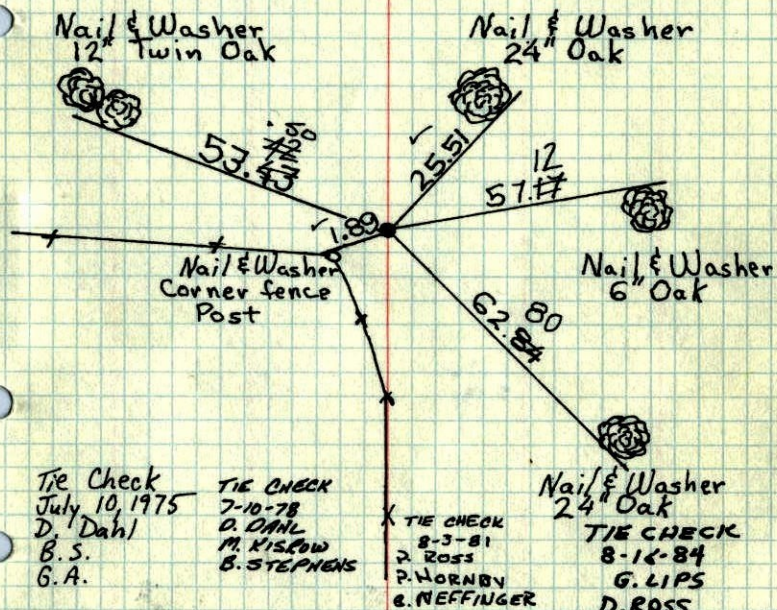 Nail & Washer
12" Twin Oak
Nail & Washer
24" Oak
.50
53.43
25.51
12
57.17
1.89
Nail & Washer
Corner fence
Post
Nail & Washer
6" Oak
80
62.84
Nail & Washer
24" Oak
Tie Check
July 10, 1975
D. Dahl
B.S.
G.A.
TIE CHECK
7-10-78
D. DAHL
M. KISLOW
B. STEPHENS
TIE CHECK
8-3-81
D. ROSS
P. HORNBY
C. NEFFINGER
TIE CHECK
G. LIPS
D. ROSS